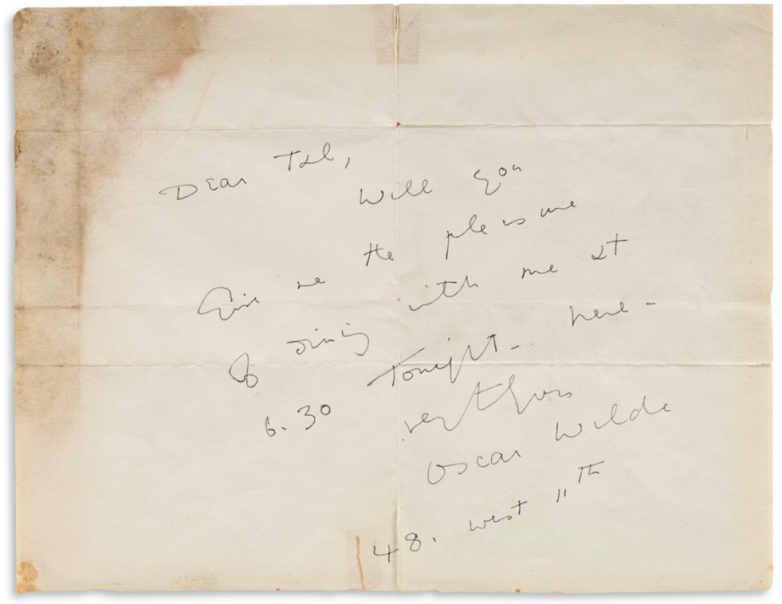 Dear Tal,
Will you
Give me the pleasure
of dining with me at
6.30 Tonight - here -
Oscar Wilde
48. West 11th